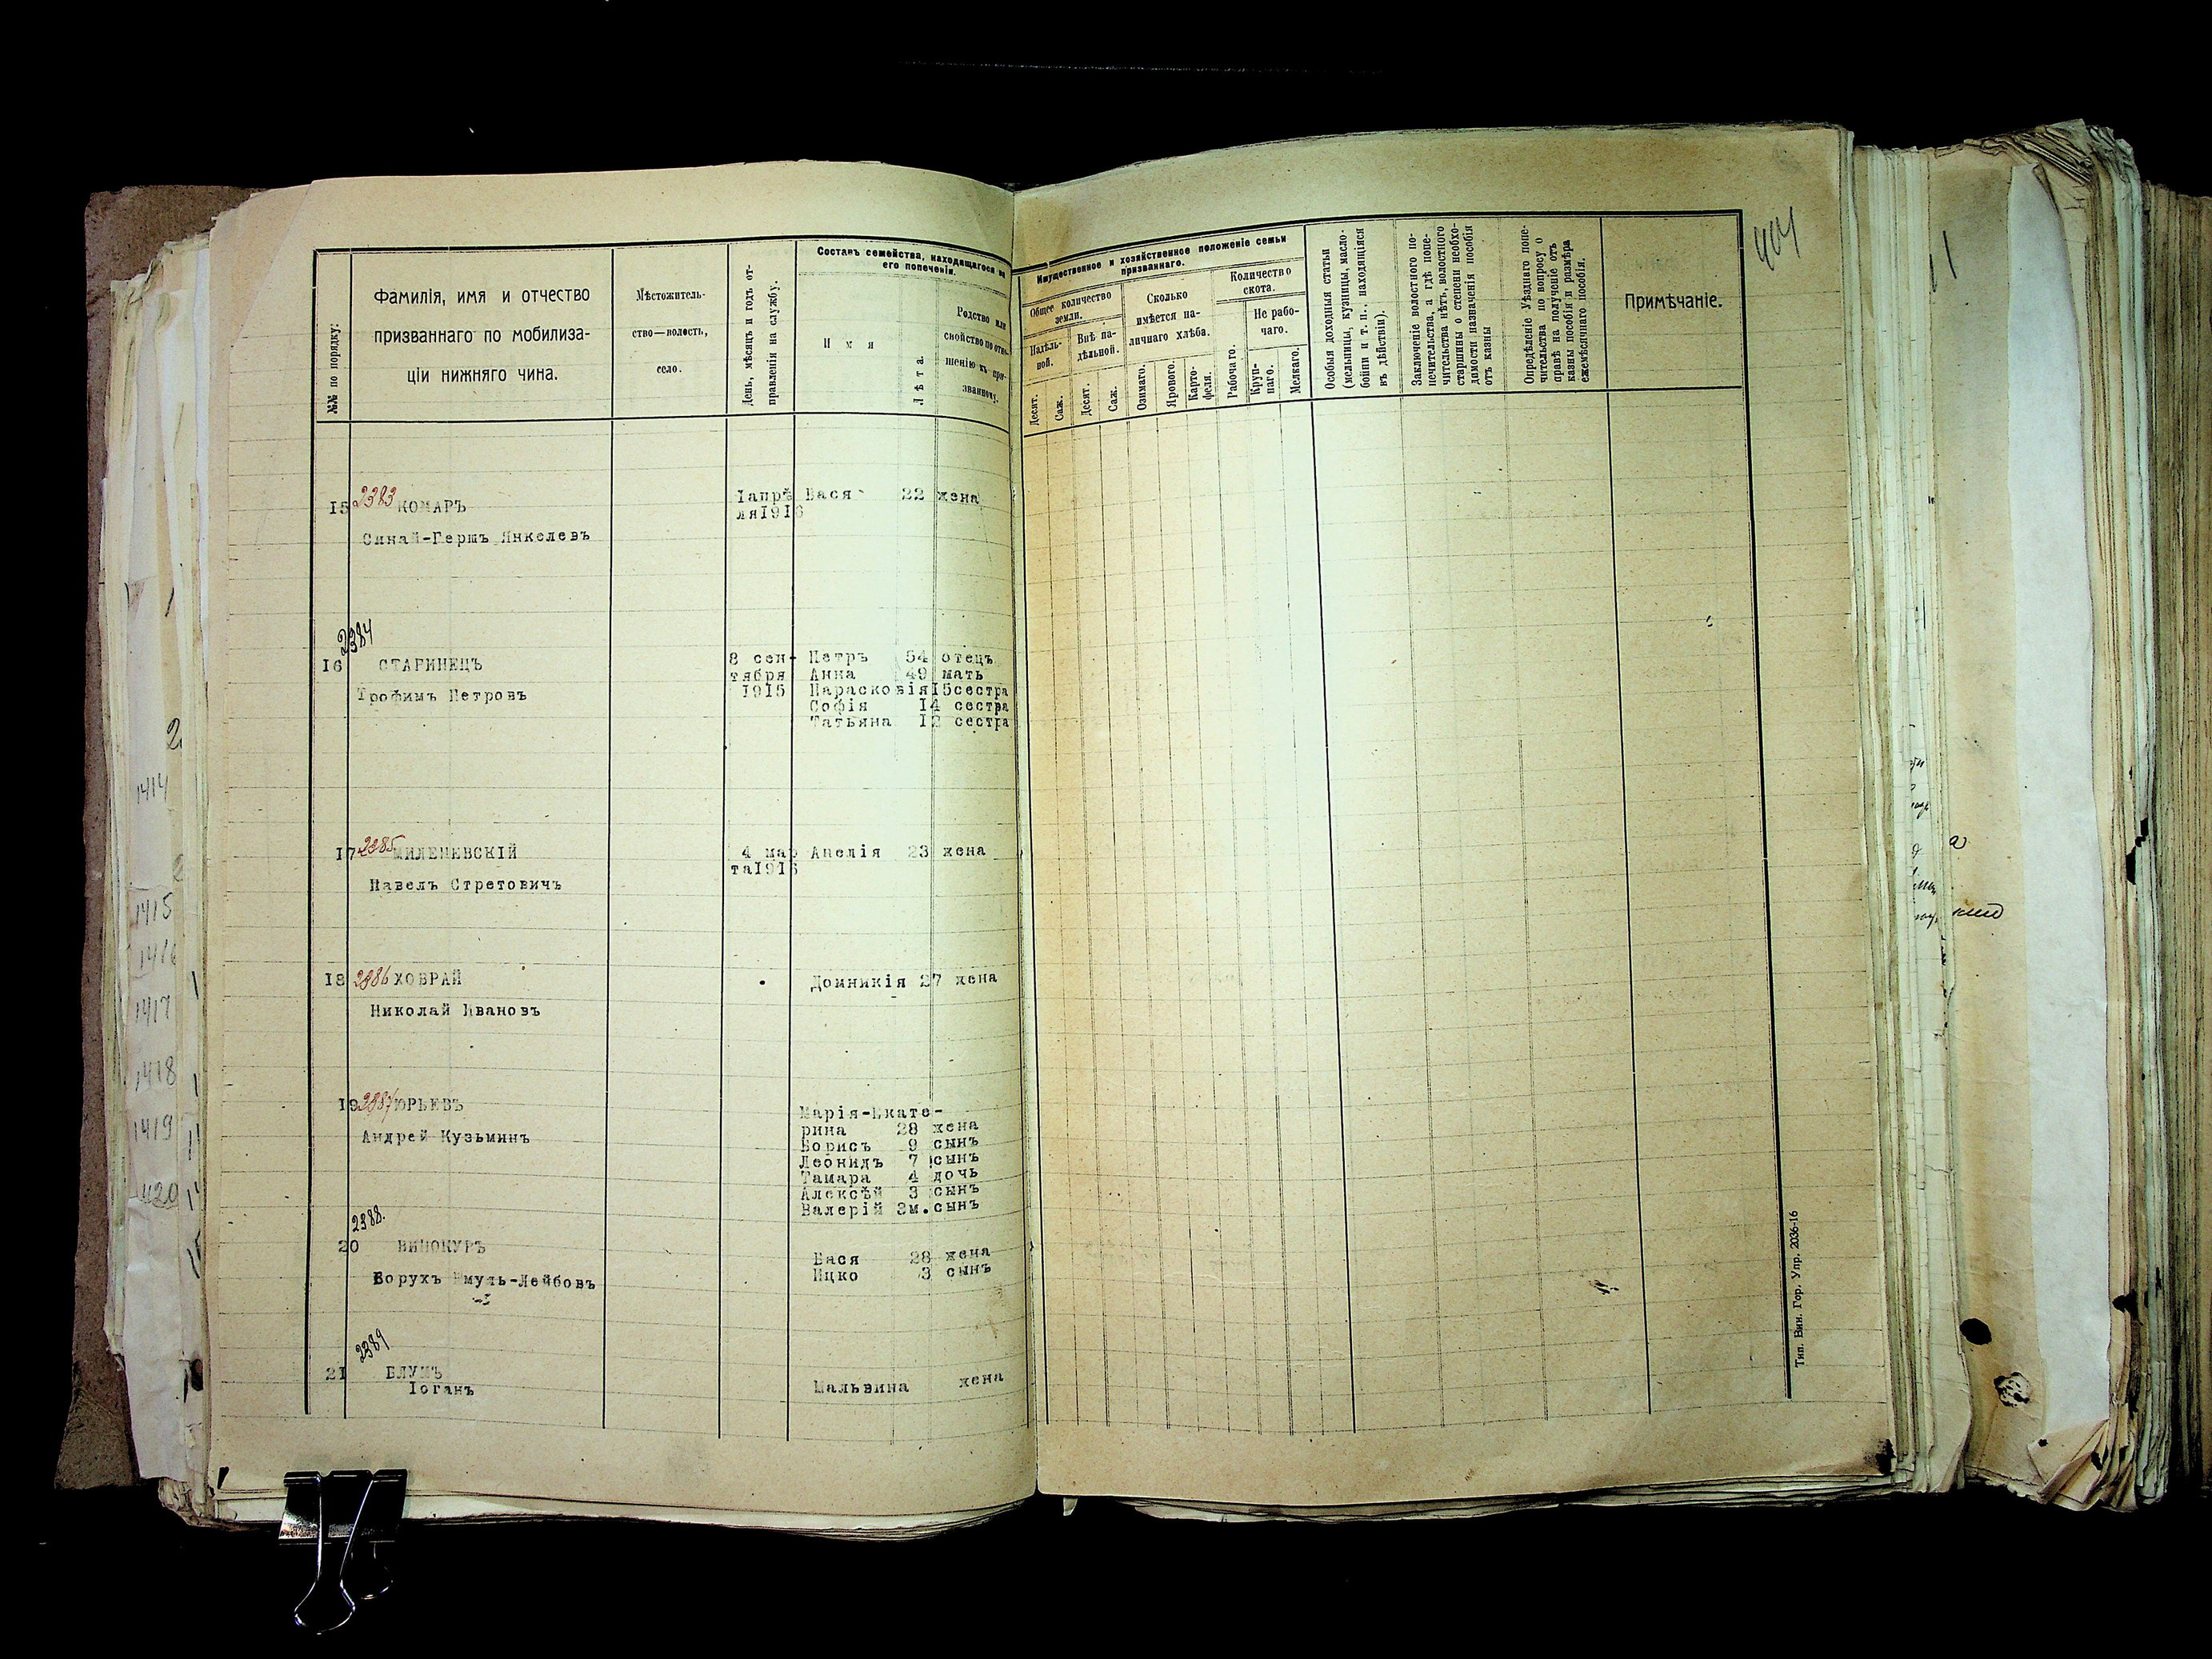 №№ по порядку.
Фамилія, имя и отчество
призваннаго по мобилиза-
ціи нижняго чина.
Мѣстожитель-
ство—волость,
село.
День, мѣсяцъ и годъ от-
правленія на службу.
Составъ семейства, находящагося на
его попеченіи.
Имя
Лѣта.
Родство или
свойство по отно-
шенію къ при-
званному.
Имущественное и хозяйственное положеніе семьи
призваннаго.
Общее количество
земли.
Надѣль-
ной.
Внѣ на-
дѣльной.
Десят.
Саж.
Десят.
Саж.
Сколько
имѣется на-
личнаго хлѣба.
Озимаго.
Ярового.
Карто-
феля.
Количество
скота.
Рабочаго.
Не рабо-
чаго.
Круп-
наго.
Мелкаго.
Особыя доходныя статьи
(мельницы, кузницы, масло-
бойни и т. п., находящіяся
въ дѣйствіи).
Заключеніе волостного по-
печительства, а гдѣ попе-
чительства нѣтъ, волостного
старшины о степени необхо-
димости назначенія пособія
отъ казны
Опредѣленіе Уѣзднаго попе-
чительства по вопросу о
правѣ на полученіе отъ
казны пособія и размѣра
ежемѣсячнаго пособія.
Примѣчаніе.
15 2383 КОМАРЪ
Синай-Гершъ Янкелевъ
1апрѣ
ля1916
Бася 22 жена
2384
16 СТАРИНЕЦЪ
Трофимъ Петровъ
8 сен-
тября
1915
Петръ 54 отецъ
Анна 49 мать
Парасковія15сестра
Софія 14 сестра
Татьяна 12 сестра
17 2385 МИЛЕНЕВСКІЙ
Павелъ Стретовичъ
4 мар
та1916
Апелія 23 жена
18 2386 ХОВРАЙ
Николай Ивановъ
Домникія 27 жена
19 2387 ЮРЬЕВЪ
Андрей Кузьминъ
Марія-Екате-
рина 28 жена
Борисъ 9 сынъ
Леонидъ 7 сынъ
Тамара 4 дочь
Алексѣй 3 сынъ
Валерій 3м.сынъ
2388.
20 ВИНОКУРЪ
Борухъ Шмуль-Лейбовъ
Бася 28 жена
Ицко 3 сынъ
2389
21 БЛУМЪ
Іоганъ
Мальвина жена
Тип. Вин. Гор. Упр. 2036-16
1414
1415
1416
1417
1418
1419
1420